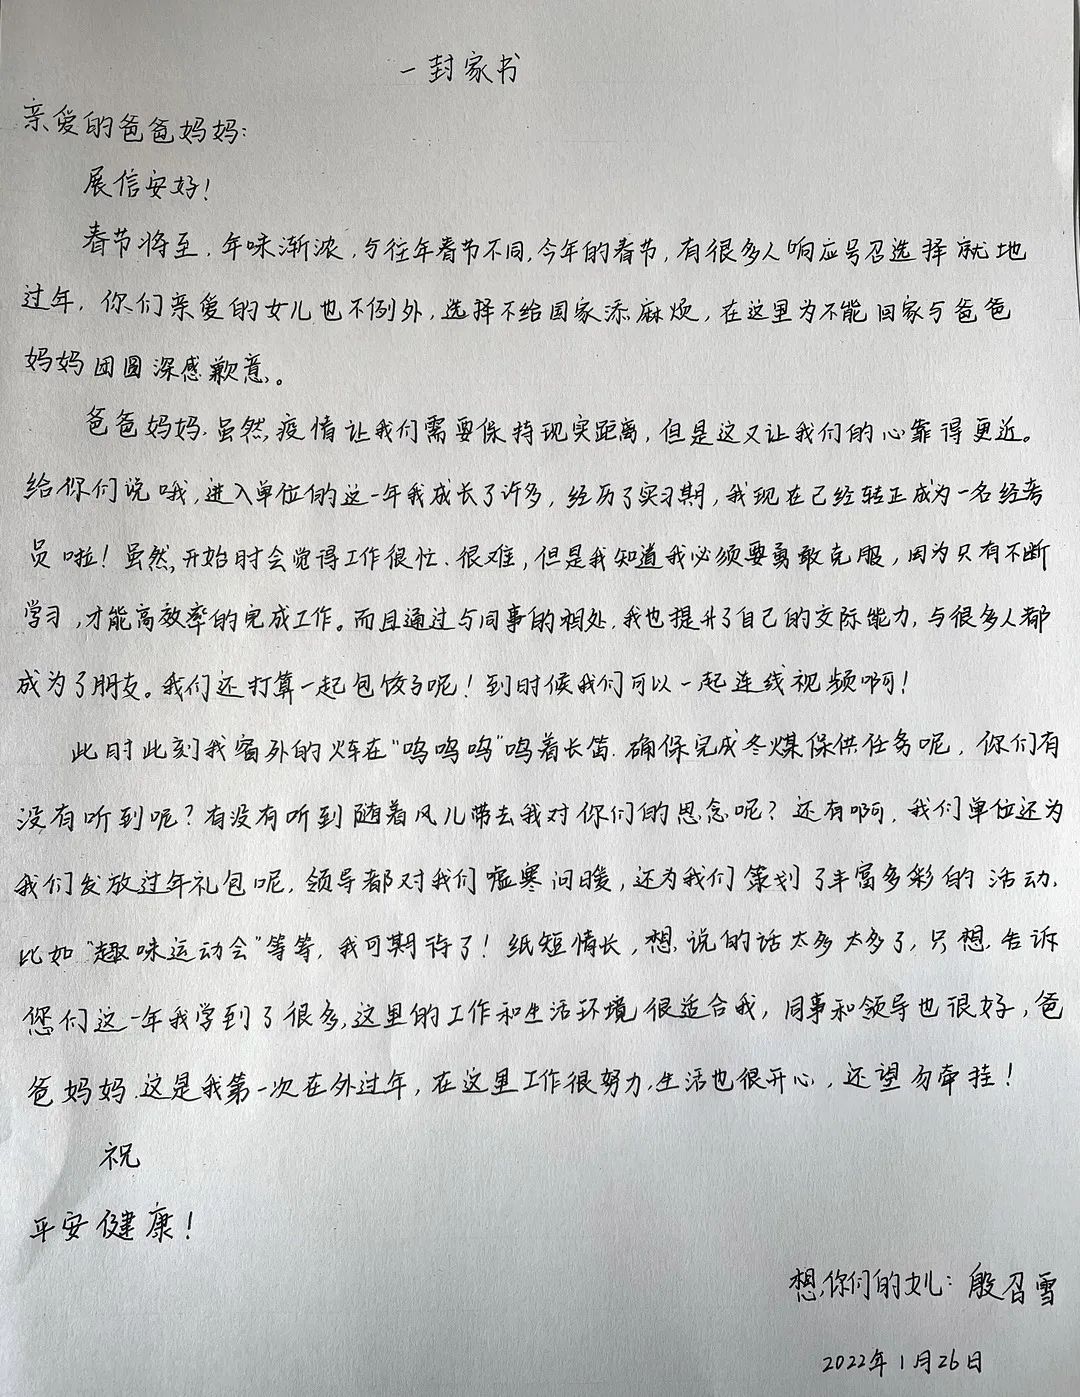 一封家书
亲爱的爸爸妈妈:
展信安好!
春节将至，年味渐浓，与往年春节不同，今年的春节，有很多人响应号召选择就地
过年，你们亲爱的女儿也不例外，选择不给国家添麻烦，在这里为不能回家与爸爸
妈妈团圆深感歉意。
爸爸妈妈，虽然疫情让我们需要保持现实距离，但是这又让我们的心靠得更近。
给你们说哦，进入单位的这一年我成长了许多，经历了实习期，我现在已经转正成为一名经考
员啦！虽然开始时会觉得工作很忙、很难，但是我知道我必须要勇敢克服，因为只有不断
学习，才能高效率的完成工作。而且通过与同事的相处，我也提升了自己的交际能力，与很多人都
成为了朋友。我们还打算一起包饺子呢！到时候我们可以一起连线视频啊！
此时此刻我窗外的火车在“呜呜呜”鸣着长笛，确保完成冬煤保供任务呢，你们有
没有听到呢？有没有听到随着风儿带去我对你们的思念呢？还有啊，我们单位还为
我们发放过年礼包呢，领导都对我们嘘寒问暖，还为我们策划了丰富多彩的活动，
比如“趣味运动会”等等，我可期待了！纸短情长，想说的话太多太多了，只想告诉
您们这一年我学到了很多，这里的工作和生活环境很适合我，同事和领导也很好，爸
爸妈妈，这是我第一次在外过年，在这里工作很努力，生活也很开心，还望勿牵挂！
祝
平安健康！
想你们的女儿：殷召雪
2022年1月26日